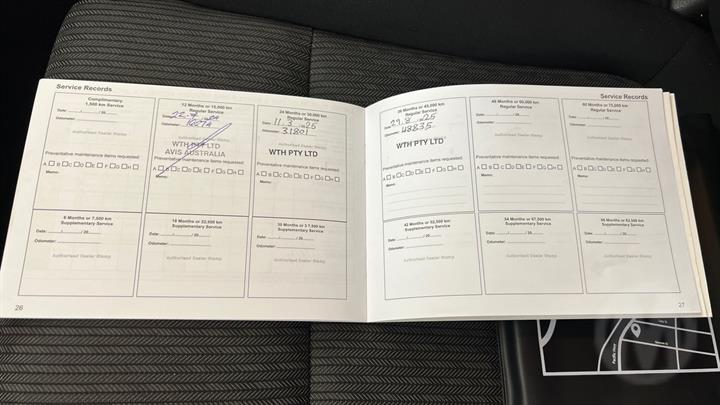 Service Records
Complimentary
1,500 km Service
Date: ....../....../ 20......
Odometer:
Authorised Dealer Stamp
Preventative maintenance items requested:
A □ B □ C □ D □ E □ F □ G □ H □
Memo:
12 Months or 15,000 km
Regular Service
Date:
Odometer:
Authorised Dealer Stamp
WTH PTY LTD
AVIS AUSTRALIA
Preventative maintenance items requested:
Memo:
24 Months or 30,000 km
Regular Service
Date: 11.3 2025
Odometer: 31801
WTH PTY LTD
Preventative maintenance items requested:
A □ B □ C □ D □ E □ F □ G □ H □
Memo:
6 Months or 7,500 km
Supplementary Service
Date: ....../....../ 20......
Odometer:
Authorised Dealer Stamp
18 Months or 22,500 km
Supplementary Service
Date: ....../....../ 20......
Odometer:
Authorised Dealer Stamp
30 Months or 3 7,500 km
Supplementary Service
Date: ....../....../ 20......
Odometer:
Authorised Dealer Stamp
26
Service Records
36 Months or 45,000 km
Regular Service
Date: 29.8 2025
Odometer: 48835
WTH PTY LTD
Preventative maintenance items requested:
A □ B □ C □ D □ E □ F □ G □ H □
Memo:
48 Months or 60,000 km
Regular Service
Date: ....../....../ 20......
Odometer:
Authorised Dealer Stamp
Preventative maintenance items requested:
A □ B □ C □ D □ E □ F □ G □ H □
Memo:
60 Months or 75,000 km
Regular Service
Date: ....../....../ 20......
Odometer:
Authorised Dealer Stamp
Preventative maintenance items requested:
A □ B □ C □ D □ E □ F □ G □ H □
Memo:
42 Months or 52,500 km
Supplementary Service
Date: ....../....../ 20......
Odometer:
Authorised Dealer Stamp
54 Months or 67,500 km
Supplementary Service
Date: ....../....../ 20......
Odometer:
Authorised Dealer Stamp
66 Months or 82,500 km
Supplementary Service
Date: ....../....../ 20......
Odometer:
Authorised Dealer Stamp
27
Pacific Hwy